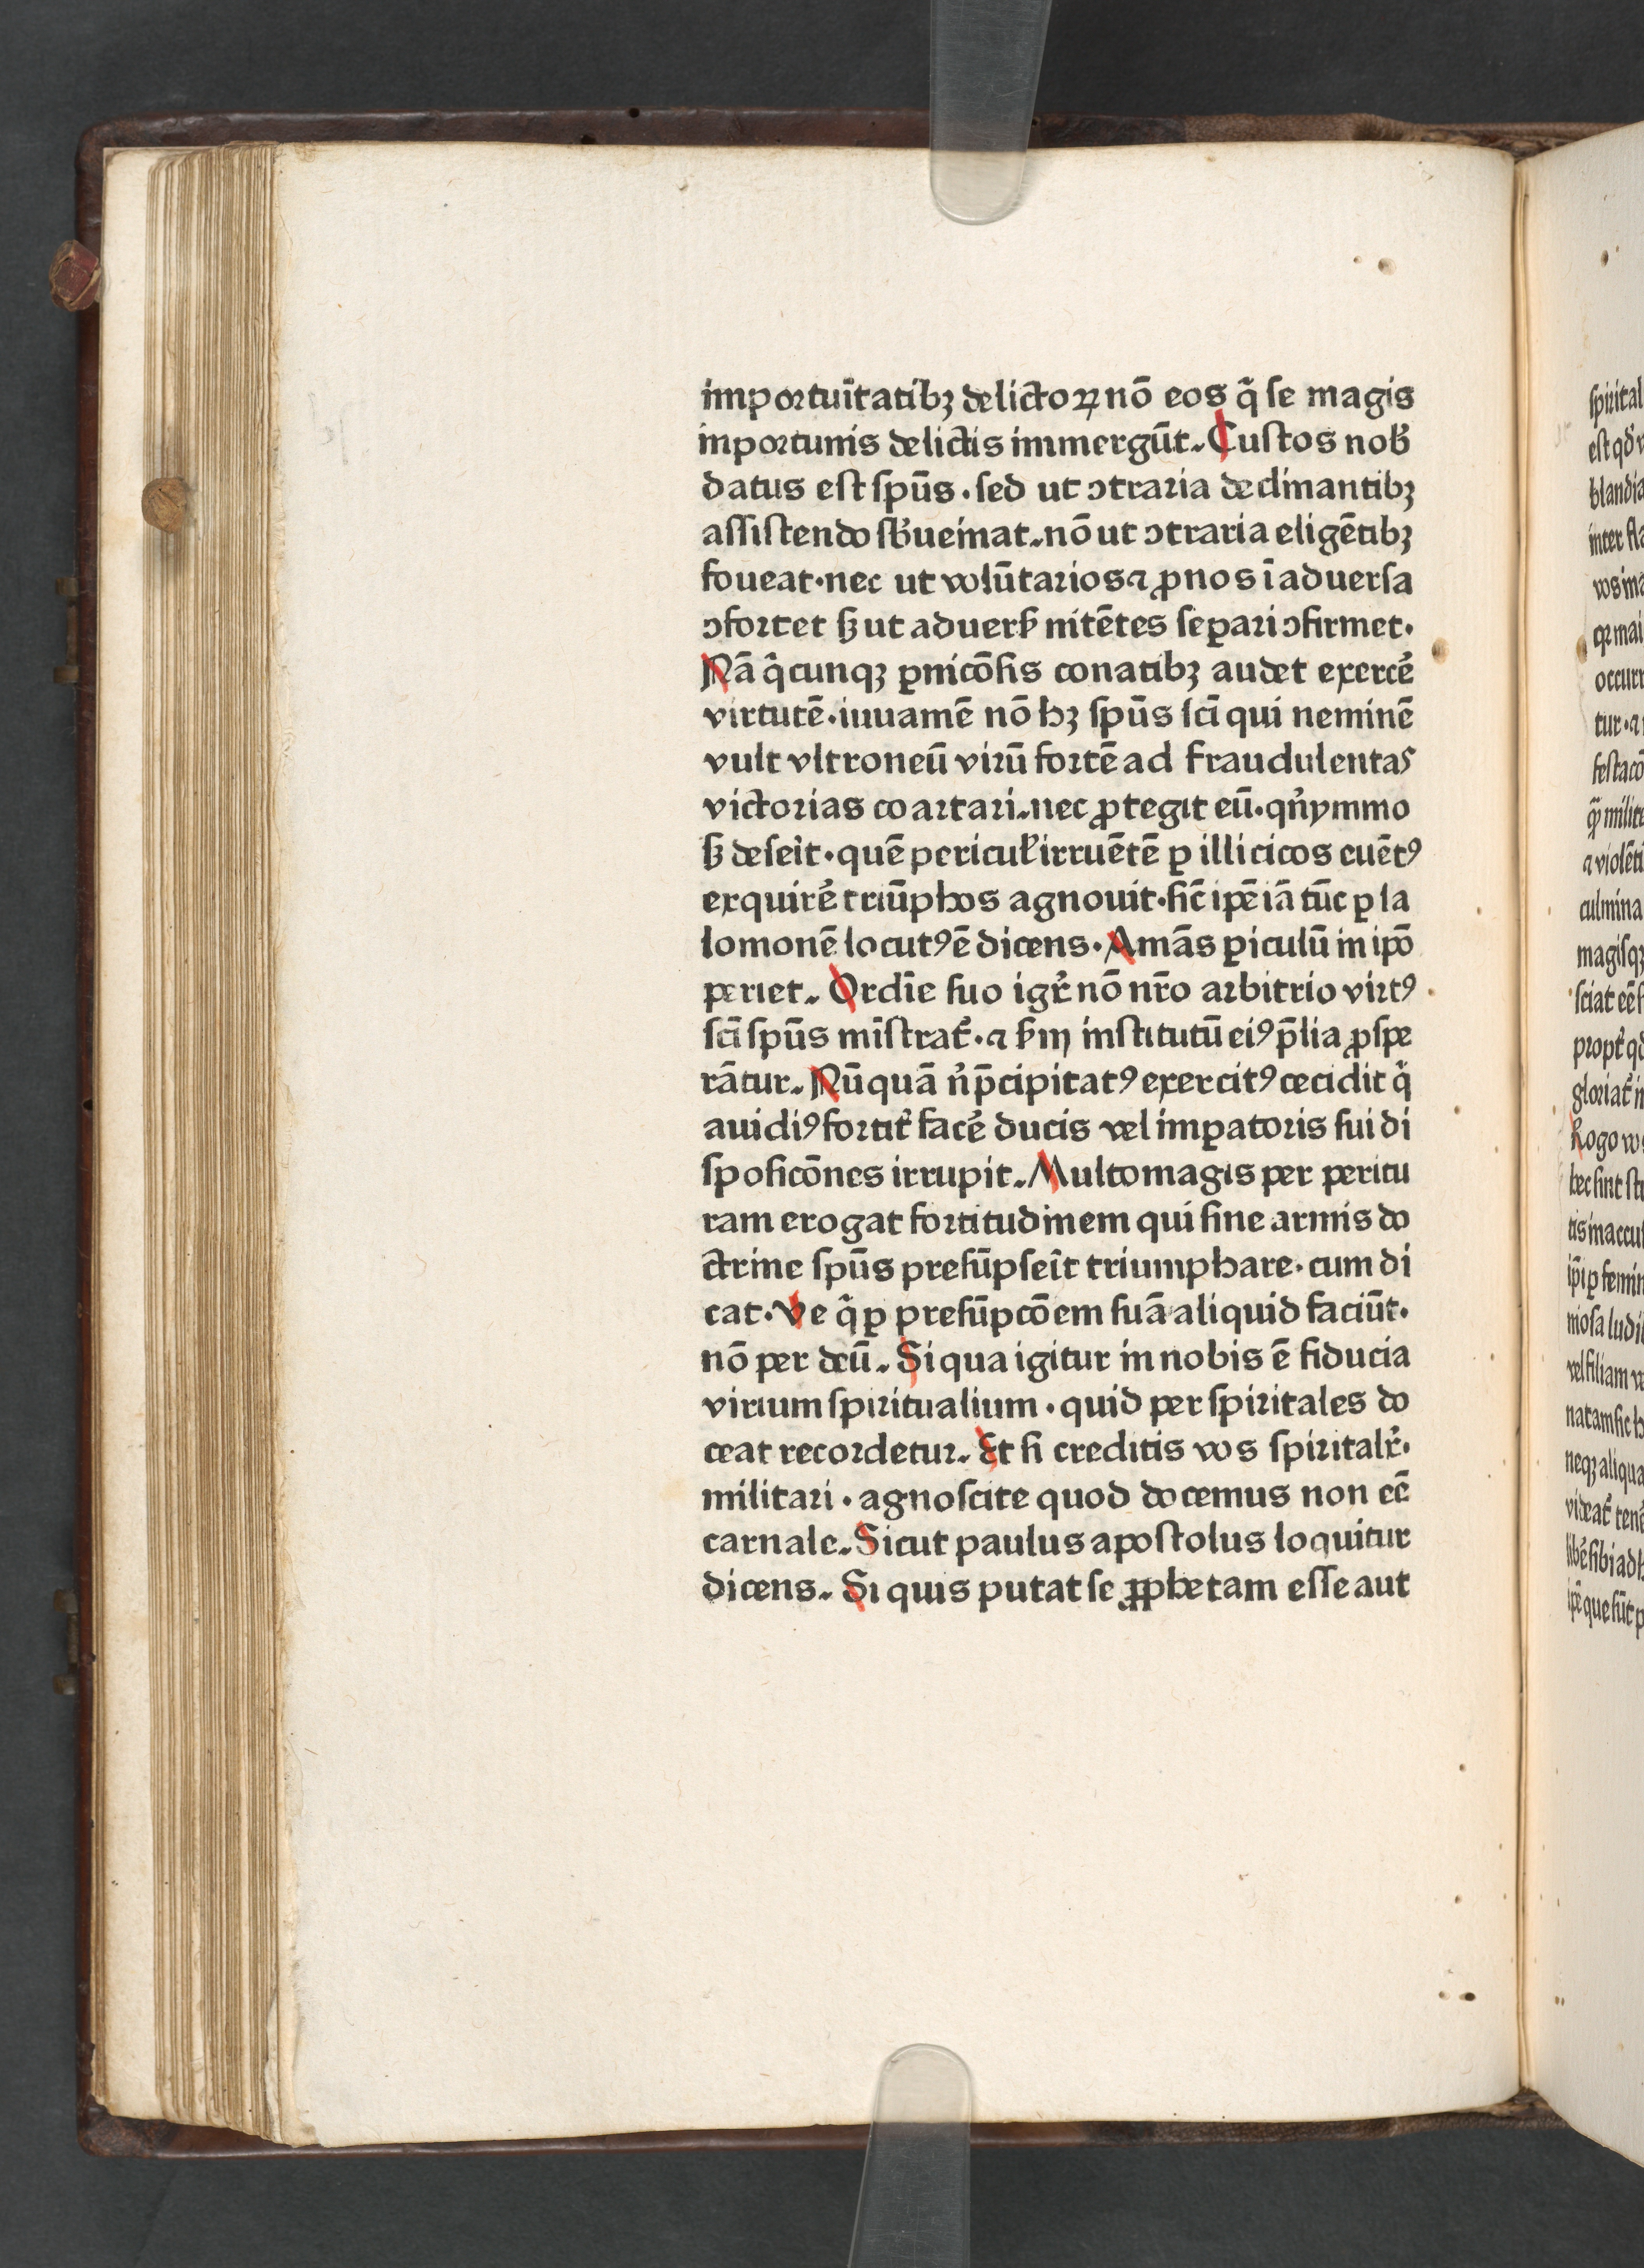 importuītatibꝫ delictoꝝ nō eos q̄ ſe magis
inportunis delictis immergūt. Cuſtos nob̄
datus eſt ſpūs · ſed ut ꝯtraria declinantibꝫ
aſſiſtendo ſb̓ueīnat. nō ut ꝯtraria eligētibꝫ
foueat · nec ut volūtarios ⁊ ꝓnos ī aduerſa
ꝯfortet ſꝫ ut aduerſ̓ nitētes ſe ꝑari ꝯfirmet ·
Nā q̄cunqꝫ ꝑnicōſis conatibꝫ audet exercē
virtutē · iuuamē nō hꝫ ſpūs ſcī qui neminē
vult vltroneū virū fortē ad fraudulentas
victorias coartari. nec ꝓtegit eū · qn̄ymmo
ſꝫ deſeīt · quē pericul̓ irruētē ꝑ illicitos euētꝰ
exquirē triūphos agnouit · ſic̄ ip̄e iā tūc ꝑ ſa
lomonē locutꝰ ē dicens · Amās ꝑiculū in ip̄o
periet. Ordīe ſuo igr̄ nō nr̄o arbitrio virtꝰ
ſcī ſpūs mīſtrat̄ · ⁊ ẜm inſtitutū eiꝰ p̄lia ꝓſpe
rātur. Nūquā n̄ p̄cipitatꝰ exercitꝰ cecidit q̄
auidiꝰ fortit̄ facē ducis vel imꝑatoris ſui di
ſpoſicōnes irrupit. Multomagis per peritu
ram erogat fortitudinem qui ſine armis do
ctrine ſpūs preſūpſeīt triumphare · cum di
cat · Ve q̄ ꝑ preſūpcōem ſuā aliquid faciūt ·
nō per deū. Si qua igitur in nobis ē fiducia
virium ſpiritualium · quid per ſpiritales do
ceat recordetur. Et ſi creditis vos ſpiritalr̄ ·
militari · agnoſcite quod docemus non eē
carnale. Sicut paulus apoſtolus loquitur
dicens. Si quis putat ſe ꝓphetam eſſe aut